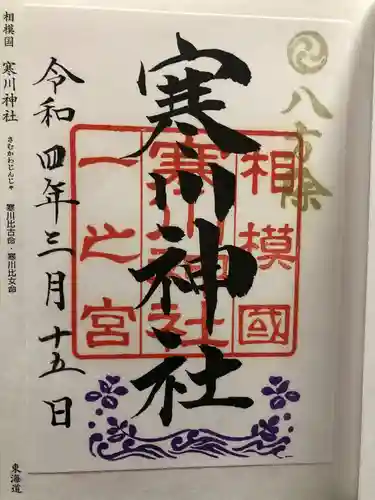 八方除
相模國
寒川神社
一之宮
寒川神社
令和四年三月十五日
相模国 寒川神社
さむかわじんじゃ
寒川比古命・寒川比女命
東海道